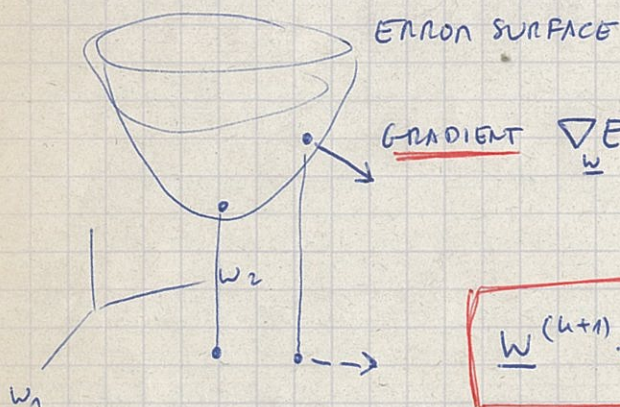 ERROR SURFACE
GRADIENT ∇E
w
w₂
w^(k+1)
w₁